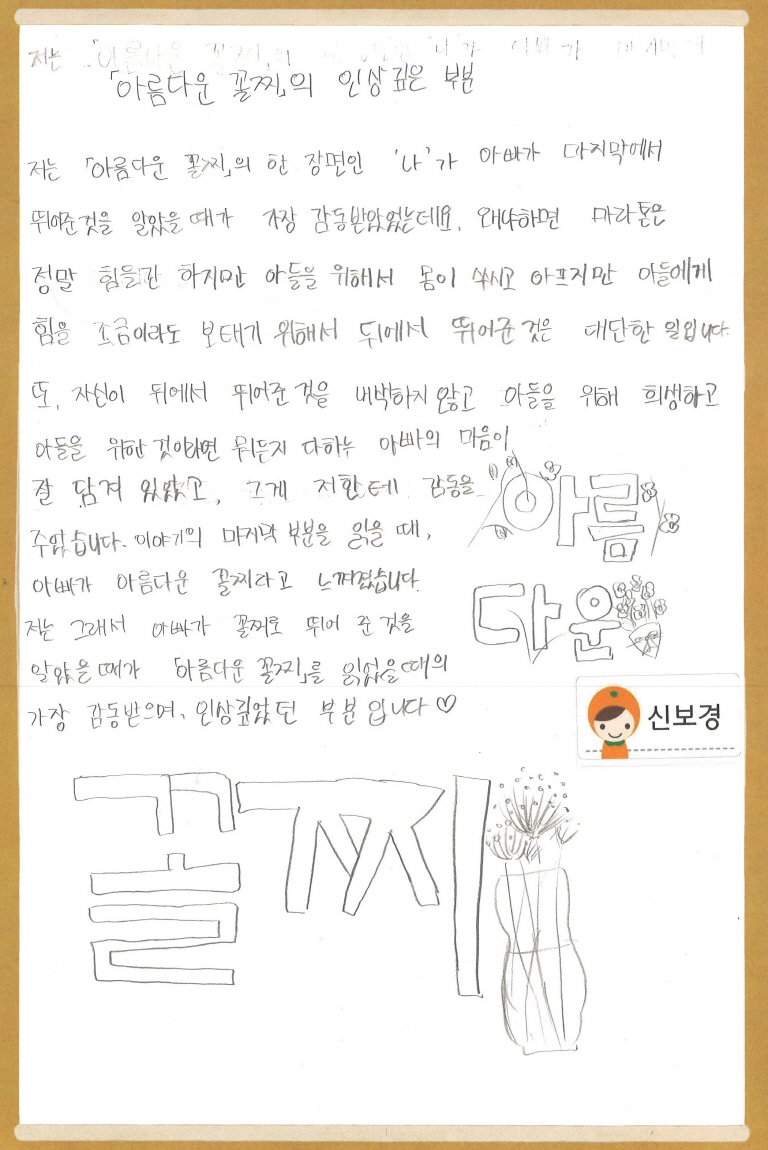 저는 「아름다운 꼴찌」의
「아름다운 꼴찌」의 인상 깊은 부분
저는 「아름다운 꼴찌」의 한 장면인 '나'가 아빠가 마지막에서
뛰어준 것을 알았을 때가 가장 감동받았었는데요, 왜냐하면 마라톤은
정말 힘들 하지만 아들을 위해서 몸이 쑤시고 아프지만 아들에게
힘을 조금이라도 보태기 위해서 뒤에서 뛰어준 것은 대단한 일입니다.
또, 자신이 뒤에서 뛰어준 것을 내색하지 않고 아들을 위해 희생하고
아들을 위한 것이라면 뭐든지 다하는 아빠의 마음이
잘 담겨 있었고, 그게 저한테 감동을
주었습니다. 이야기의 마지막 부분을 읽을 때,
아빠가 아름다운 꼴찌라고 느껴졌습니다.
저는 그래서 아빠가 꼴찌로 뛰어 준 것을
알았을 때가 「아름다운 꼴찌」를 읽었을 때의
가장 감동받으며, 인상깊었던 부분입니다♡
아름
다운
신보경
꼴찌